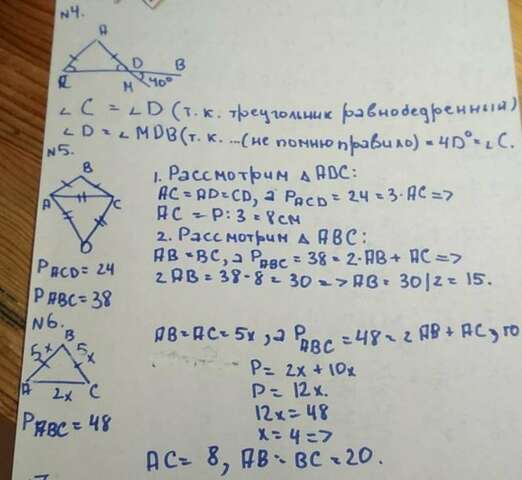 N4.
A
C D B
M 40°
∠ C = ∠ D (т. к. треугольник равнобедренный)
∠ D = ∠ MDB (т. к. ... (не помню правило) = 40° = ∠ C.
N5.
B
A C
D
P ACD = 24
P ABC = 38
1. Рассмотрим Δ ADC:
AC = AD = CD, а P ACD = 24 = 3 · AC =>
AC = P : 3 = 8 см
2. Рассмотрим Δ ABC:
AB = BC, а P ABC = 38 = 2 · AB + AC =>
2 AB = 38 - 8 = 30 => AB = 30/2 = 15.
N6.
B
5x 5x
A C
2x
P ABC = 48
AB = AC = 5x, а P ABC = 48 = 2 AB + AC, то
P = 2x + 10x
P = 12x.
12x = 48
x = 4 =>
AC = 8, AB = BC = 20.